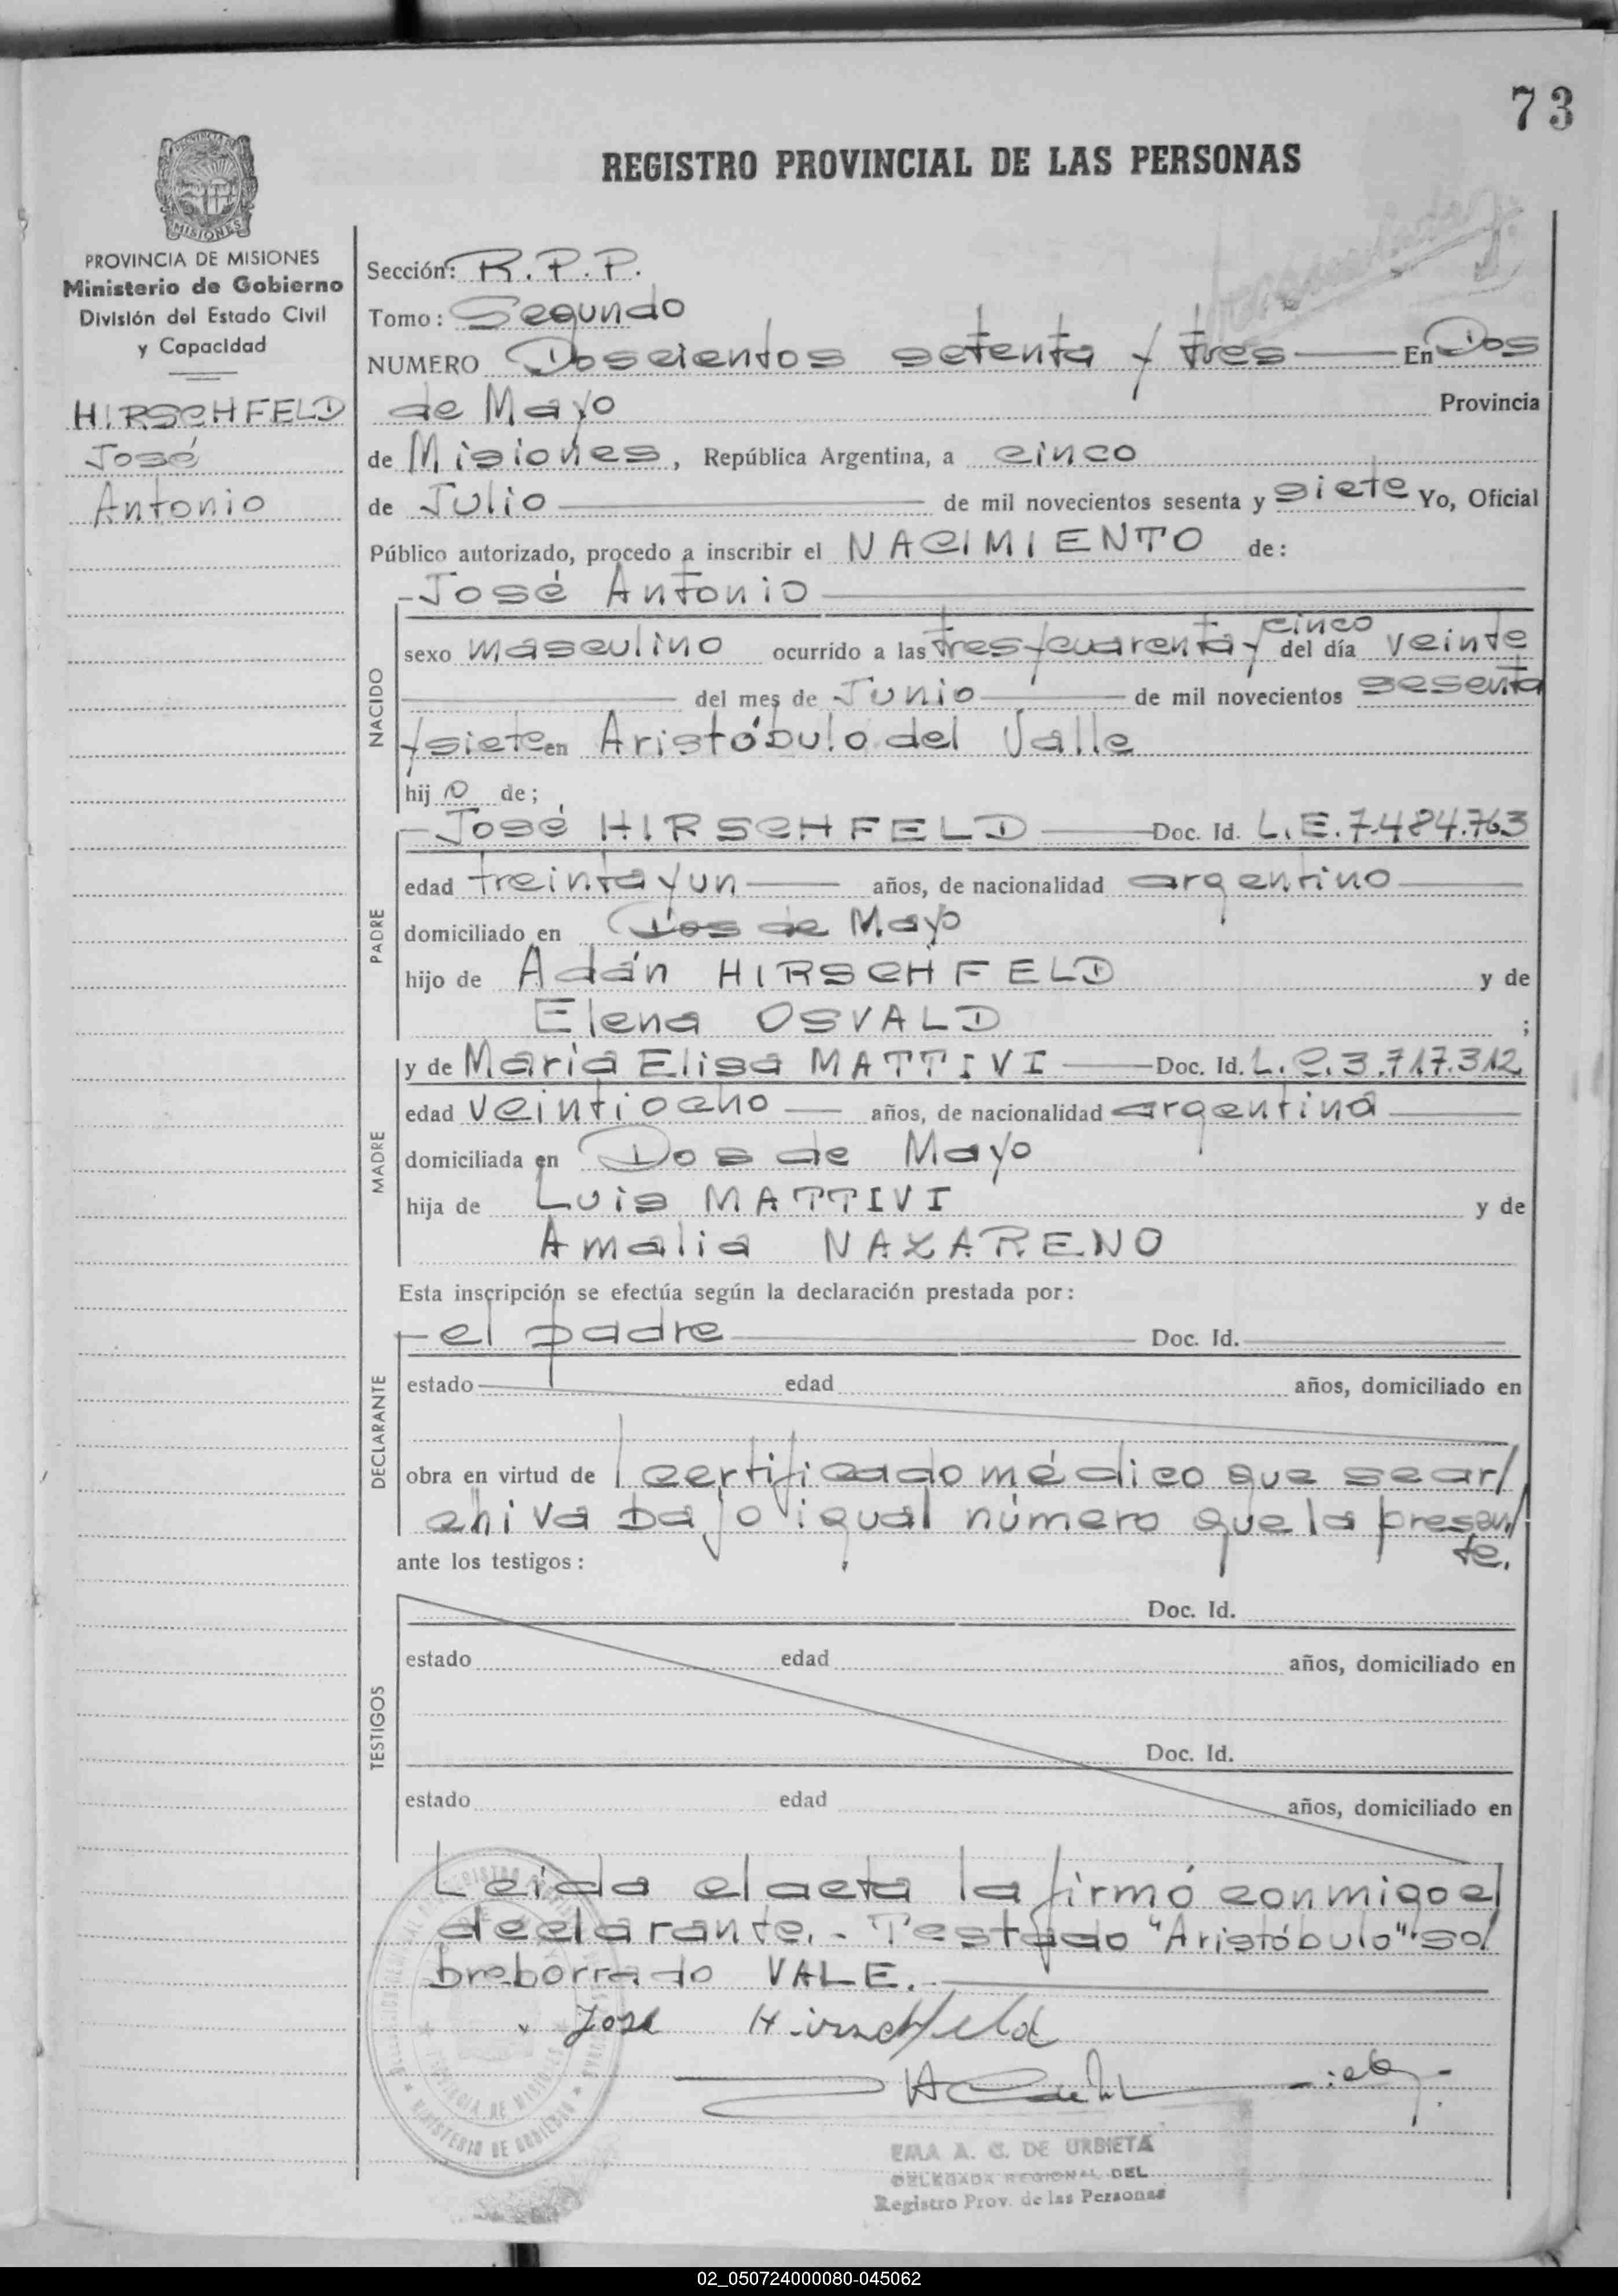 73
REGISTRO PROVINCIAL DE LAS PERSONAS
MISIONES
PROVINCIA DE MISIONES
Ministerio de Gobierno
División del Estado Civil
y Capacidad
HIRSCHFELD
José
Antonio
Sección: R.P.P.
Tomo: Segundo
NUMERO Doscientos setenta y tres — En Dos
de Mayo Provincia
de Misiones, República Argentina, a cinco
de Julio — de mil novecientos sesenta y siete Yo, Oficial
Público autorizado, procedo a inscribir el NACIMIENTO de:
- José Antonio —
NACIDO
sexo masculino ocurrido a las tres y cuarenta y cinco del día veinte
— del mes de Junio — de mil novecientos sesenta
y siete en Aristóbulo del Valle
hij o de;
PADRE
- José HIRSCHFELD — Doc. Id. L.E.7.484.763
edad treinta y un — años, de nacionalidad argentino —
domiciliado en Dos de Mayo
hijo de Adán HIRSCHFELD y de
Elena OSVALD ;
MADRE
y de María Elisa MATTIVI — Doc. Id. L.C.3.717.312
edad veintiocho — años, de nacionalidad argentina —
domiciliada en Dos de Mayo
hija de Luis MATTIVI y de
Amalia NAZARENO
Esta inscripción se efectúa según la declaración prestada por:
DECLARANTE
- el padre — Doc. Id. —
estado edad años, domiciliado en
obra en virtud de certificado médico que se ar/
chiva bajo igual número que la presen/
te.
ante los testigos:
TESTIGOS
Doc. Id.
estado edad años, domiciliado en
Doc. Id.
estado edad años, domiciliado en
Leída el acta la firmó conmigo el
declarante.- Testado "Aristóbulo" so/
breborrado VALE.—
José Hirschfeld
EMA A. G. DE URBIETA
DELEGADA REGIONAL DEL
Registro Prov. de las Personas
02_050724000080-045062